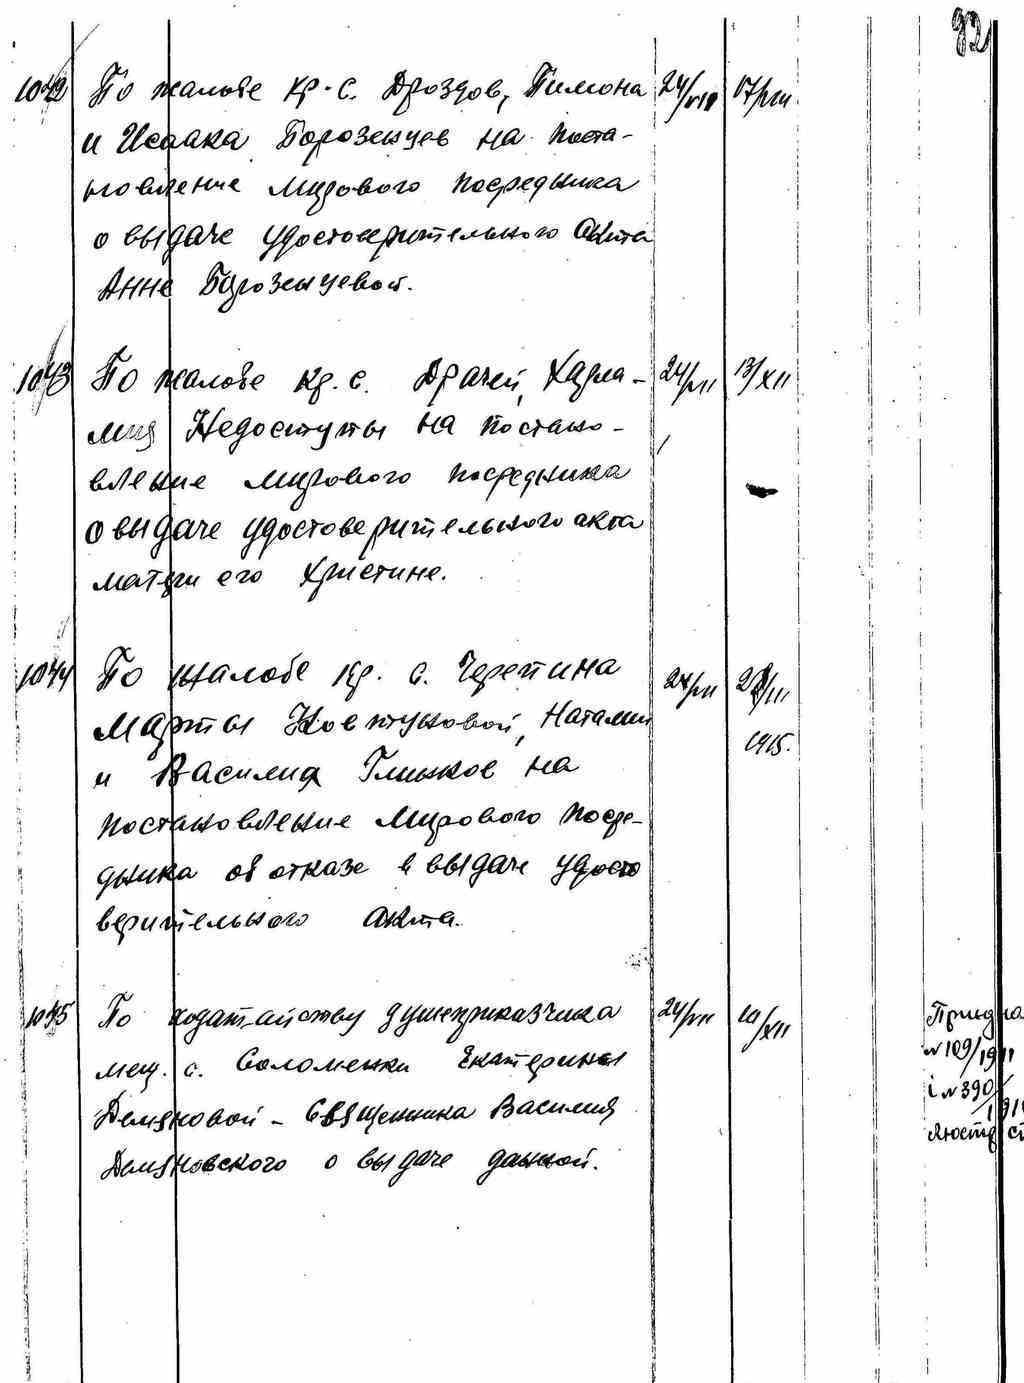 92
1042 По жалобе кр. с. Дроздов, Пимона 24/VII 17/VIII
и Исаака Борозенцев на поста-
новление мирового посредника
о выдаче удостоверительного акта
Анне Борозенцевой.
1043 По жалобе кр. с. Драчей, Харла- 24/VII 13/XII
мия Недоступы на постано-
вление мирового посредника
о выдаче удостоверительного акта
матери его Христине.
1044 По жалобе кр. с. Черепина 24/VII
Марты Ковтуновой, Наталии 1915.
и Василия Глинков на
постановление мирового посре-
дника об отказе в выдаче удосто
верительного акта.
1045 По ходатайству душеприказчика 24/VII
мещ. с. Соломенки Екатерины
Демяновой - священника Василия
Демяновского о выдаче данной.
№ 109/1911
і № 390/